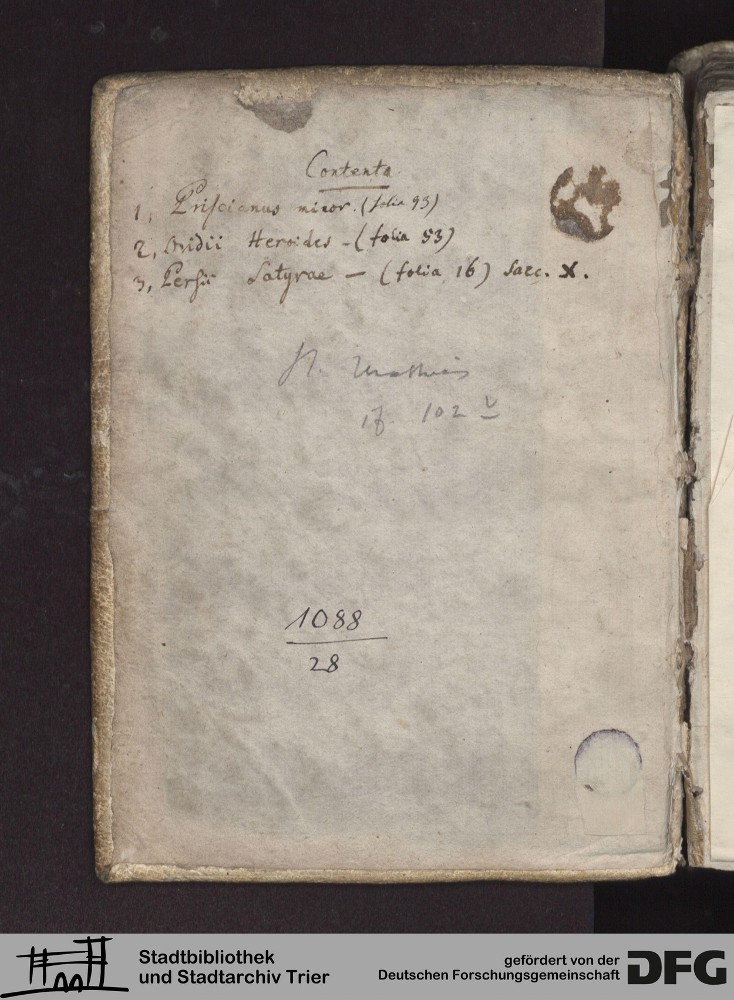 Contenta
1, Priſcianus minor. (folia 93)
2, Ovidii Heroides - (folia 53)
3, Perſii Satyrae - (folia 16) Saec. X.
St. Mathias
102 v
1088
28
Stadtbibliothek
und Stadtarchiv Trier
gefördert von der
Deutschen Forschungsgemeinschaft
DFG